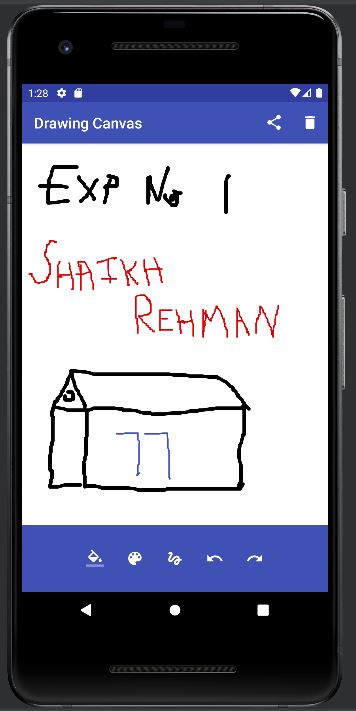 1:28
Drawing Canvas
EXP No 1
SHAIKH
REHMAN